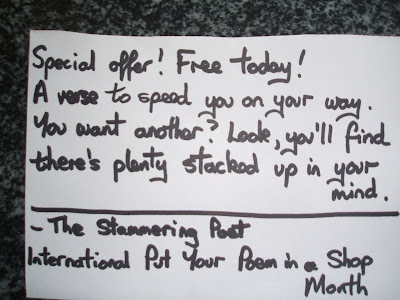 Special offer! Free today!
A verse to speed you on your way.
You want another? Look, you'll find
there's plenty stacked up in your
mind.
- The Stammering Poet
International Put Your Poem in a Shop
Month